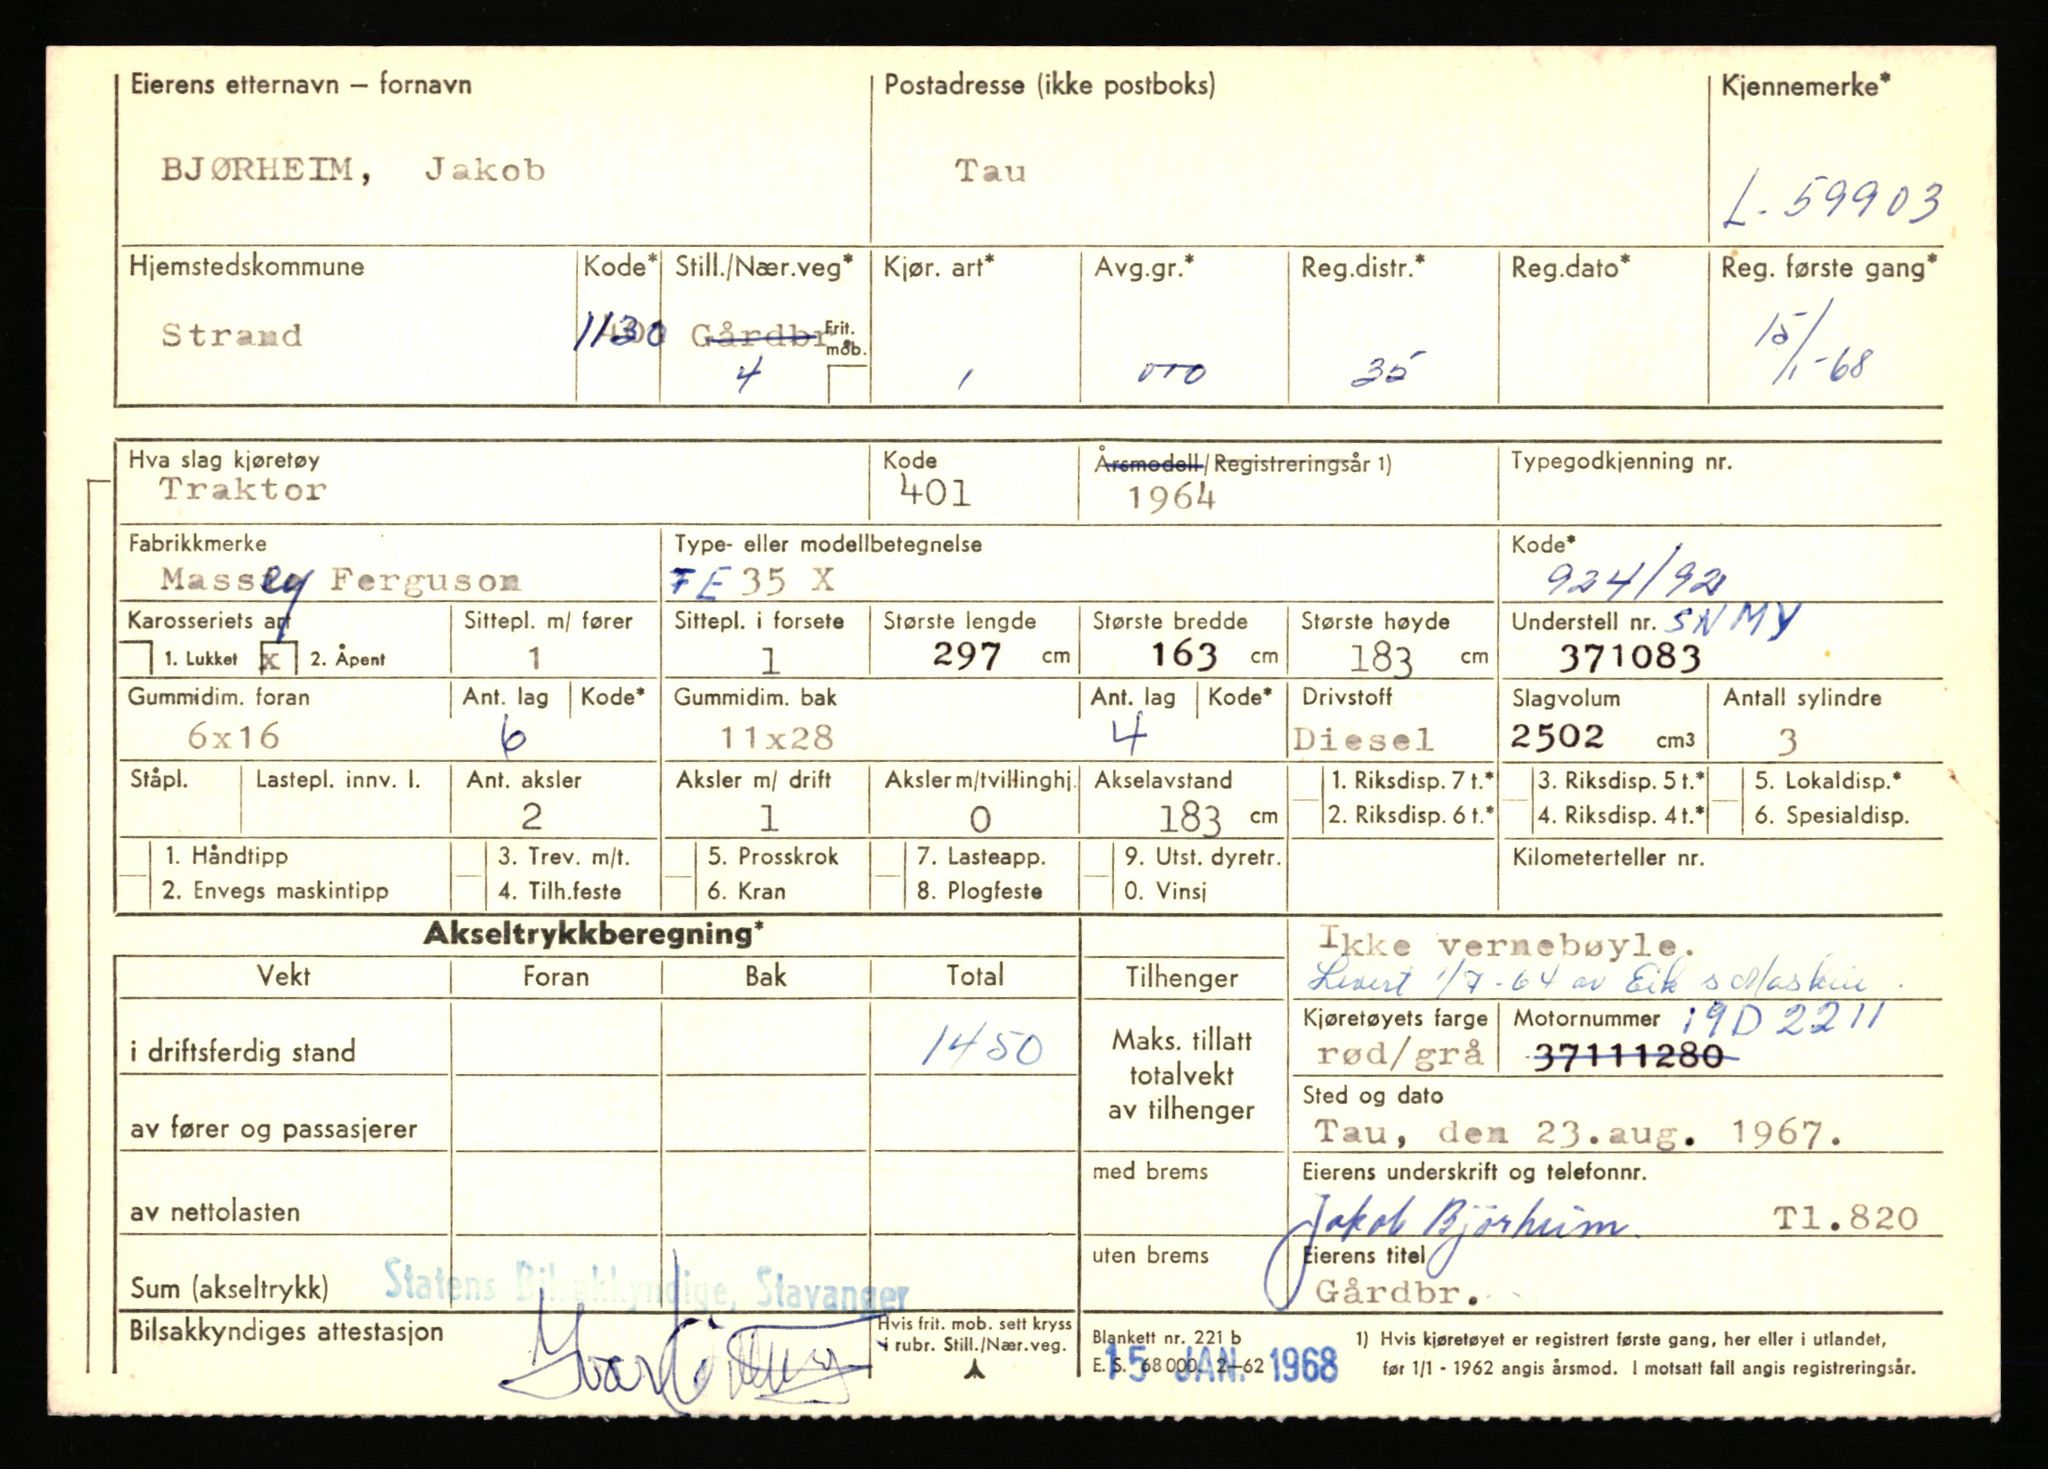 Eierens etternavn – fornavn Postadresse (ikke postboks) Kjennemerke*
BJØRHEIM, Jakob Tau L-59903
Hjemstedskommune Kode* Still./Nær.veg* Kjør. art* Avg.gr.* Reg.distr.* Reg.dato* Reg. første gang*
Strand 1130 Gårdbr. Frit. mob. 15/1-68
4 1 35
Hva slag kjøretøy Kode Årsmodell/Registreringsår 1) Typegodkjenning nr.
Traktor 401 1964
Fabrikkmerke Type- eller modellbetegnelse Kode*
Massey Ferguson FE 35 X 924/92
Karosseriets art Sittepl. m/ fører Sittepl. i forsete Største lengde Største bredde Største høyde Understell nr. SNMY
1. Lukket x 2. Åpent 1 1 297 cm 163 cm 183 cm 371083
Gummidim. foran Ant. lag Kode* Gummidim. bak Ant. lag Kode* Drivstoff Slagvolum Antall sylindre
6x16 6 11x28 4 Diesel 2502 cm3 3
Ståpl. Lastepl. innv. l. Ant. aksler Aksler m/ drift Aksler m/tvillinghj. Akselavstand 1. Riksdisp. 7 t.* 3. Riksdisp. 5 t.* 5. Lokaldisp.*
2 1 0 183 cm 2. Riksdisp. 6 t.* 4. Riksdisp. 4 t.* 6. Spesialdisp.
1. Håndtipp 3. Trev. m/t. 5. Prosskrok 7. Lasteapp. 9. Utst. dyretr. Kilometerteller nr.
2. Envegs maskintipp 4. Tilh.feste 6. Kran 8. Plogfeste 0. Vinsj
Akseltrykkberegning* Ikke vernebøyle.
Vekt Foran Bak Total Tilhenger Levert 1/7-64 av Eik s Maskin.
Kjøretøyets farge Motornummer 19D2211
i driftsferdig stand 1450 Maks. tillatt totalvekt av tilhenger rød/grå 37111280
Sted og dato
av fører og passasjerer Tau, den 23.aug. 1967.
med brems Eierens underskrift og telefonnr.
av nettolasten Jakob Bjørheim Tl.820
uten brems Eierens titel
Sum (akseltrykk) Statens Bilsakkyndige, Stavanger Gårdbr.
Bilsakkyndiges attestasjon Hvis frit. mob. sett kryss i rubr. Still./Nær.veg. Blankett nr. 221 b 1) Hvis kjøretøyet er registrert første gang, her eller i utlandet,
E. S. 68 000. 2–62 15 JAN. 1968 før 1/1 - 1962 angis årsmod. I motsatt fall angis registreringsår.